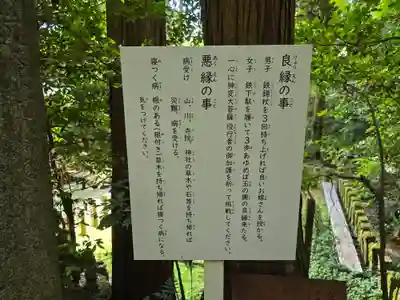 良縁の事
男子 鉄錫杖を3回持ち上げれば良いお嫁さんを授かる。
女子 鉄下駄を履いて3歩あゆめば玉の輿の良縁来たる。
一心に神変大菩薩 役行者の御加護を祈って挑戦してください。
悪縁の事
病受け 山、川、寺院、神社の草木や石等を持ち帰れば
災難、病を受ける。
寝つく病 根のある(根付き)草木を持ち帰れば寝つく病になる。
気をつけてください。